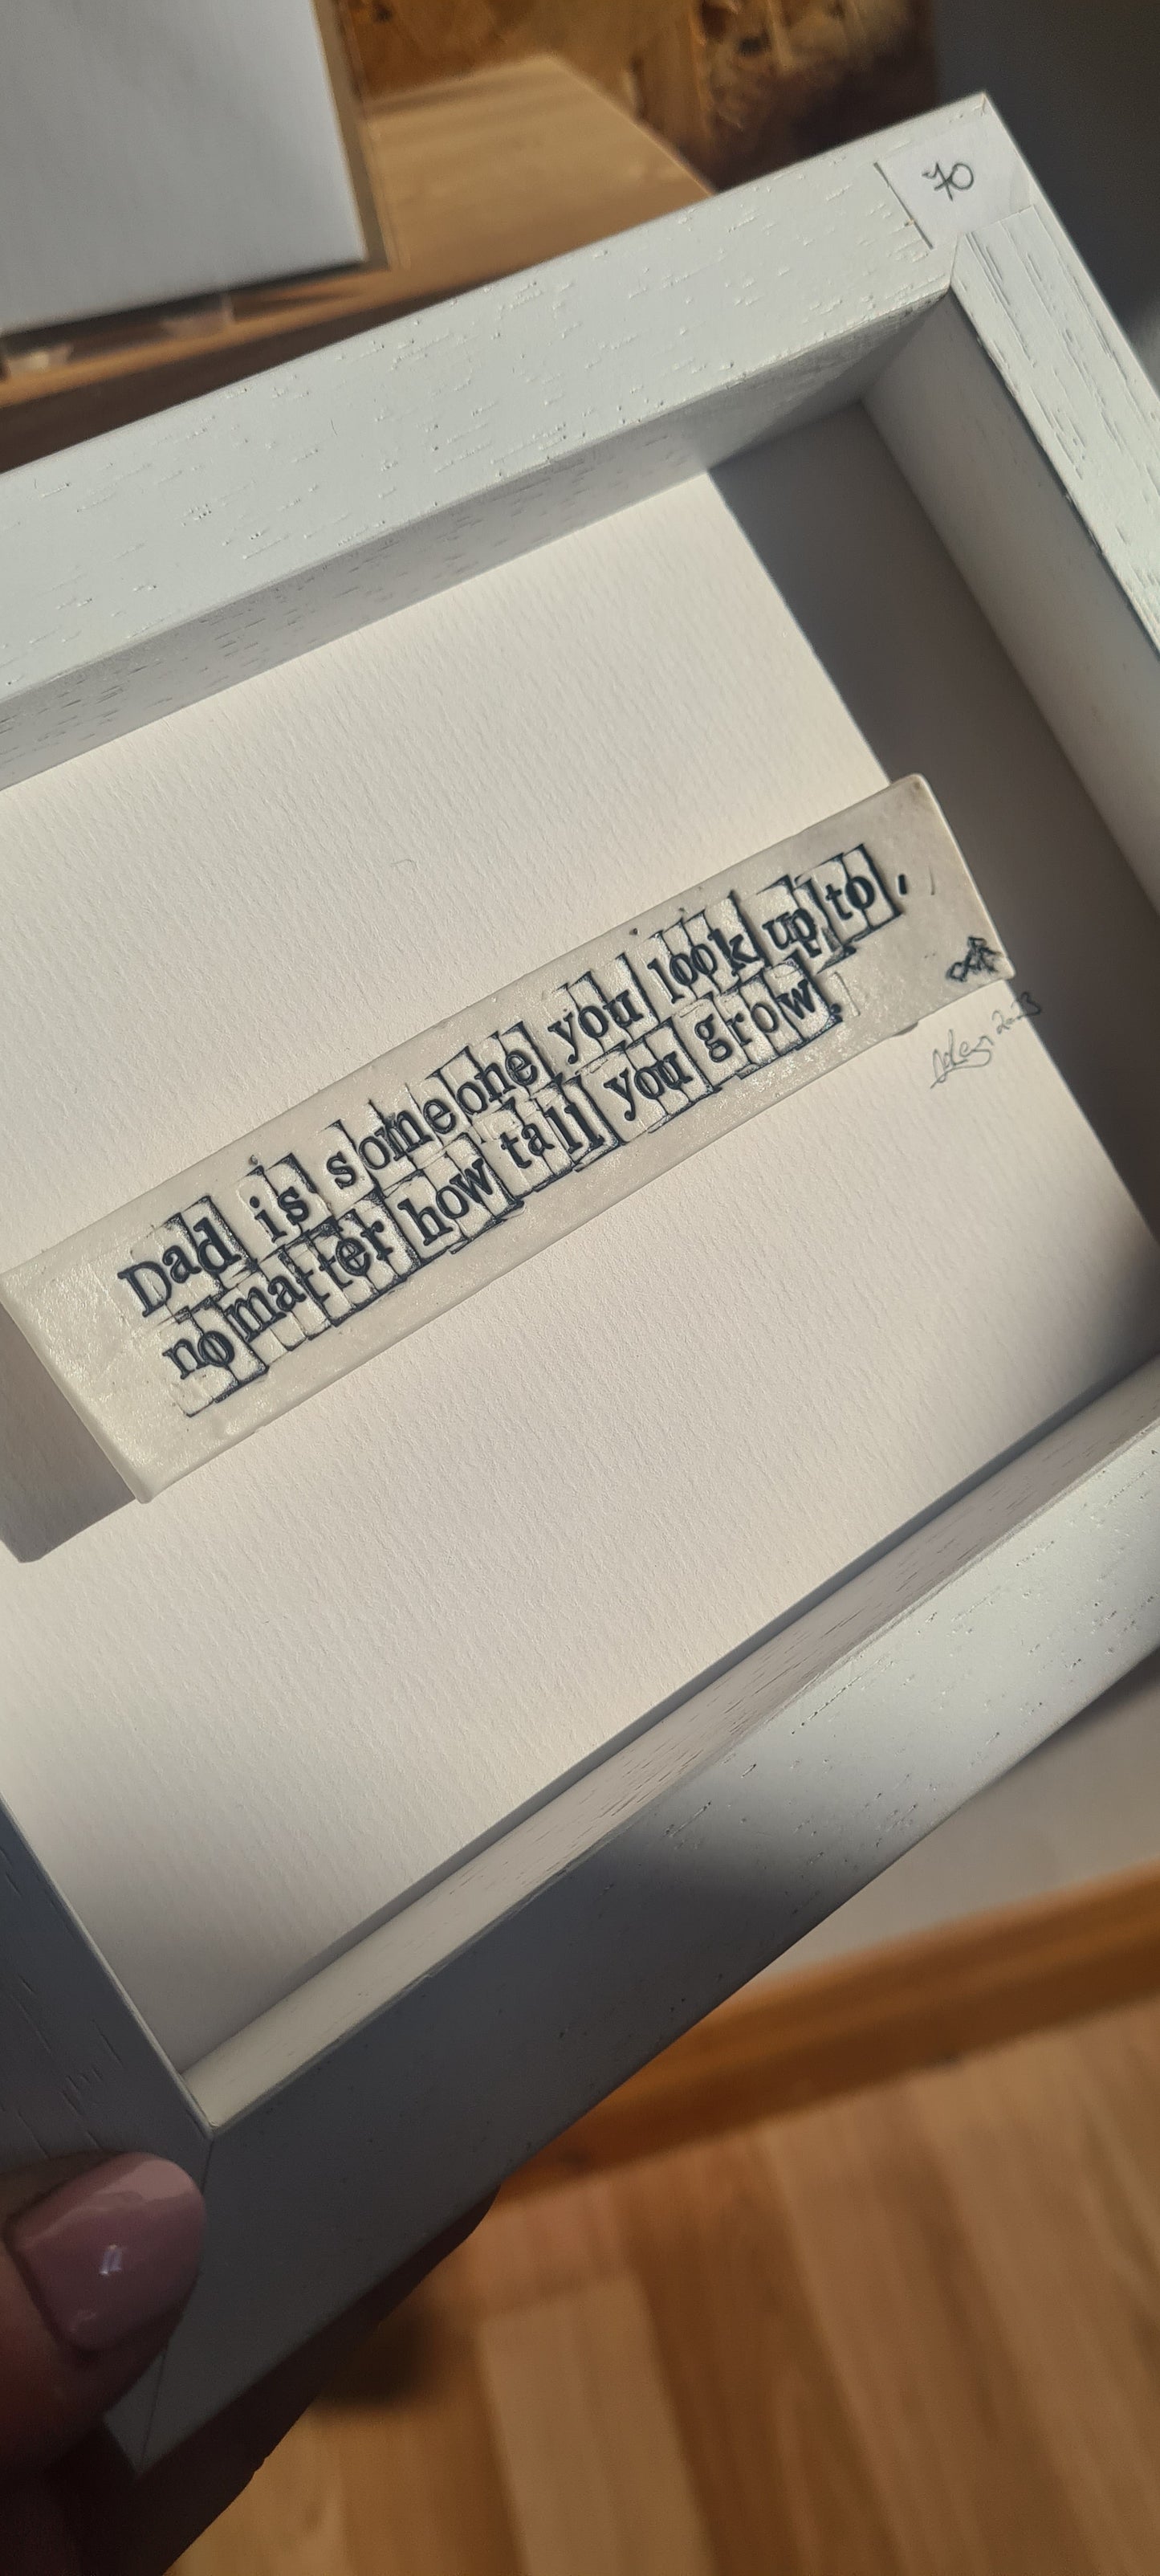 70
Dad is someone you look up to,
no matter how tall you grow.
2023